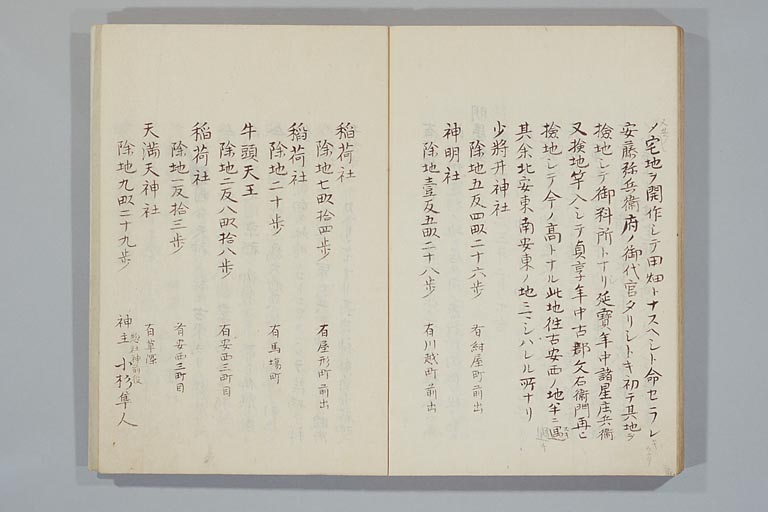 ノ宅地ヲ開作シテ田畑トナスヘシト命セラレ
安藤弥兵衛府ノ御代官タリシトキ初テ其地ヲ
撿地シテ御料所トナリ延寶年中諸星庄兵衛
又撿地竿入シテ貞享年中古郡文右衛門再ヒ
撿地シテ今ノ高トナル此地往古安西ノ地半ニ
其余北安東南安東ノ地ニマシハレル所ナリ
少將井神社
除地五反四畝二十六歩 有紺屋町前出
神明社
除地壹反五畝二十八歩 有川越町前出
稲荷社
除地七畝拾四歩 有屋形町前出
稲荷社
除地二十歩 有馬場町
牛頭天王
除地二反八畝拾八歩 有安西三町目
稲荷社
除地一反拾三歩 有安西三町目
天満天神社 有草深
除地九畝二十九歩 神主 小杉隼人